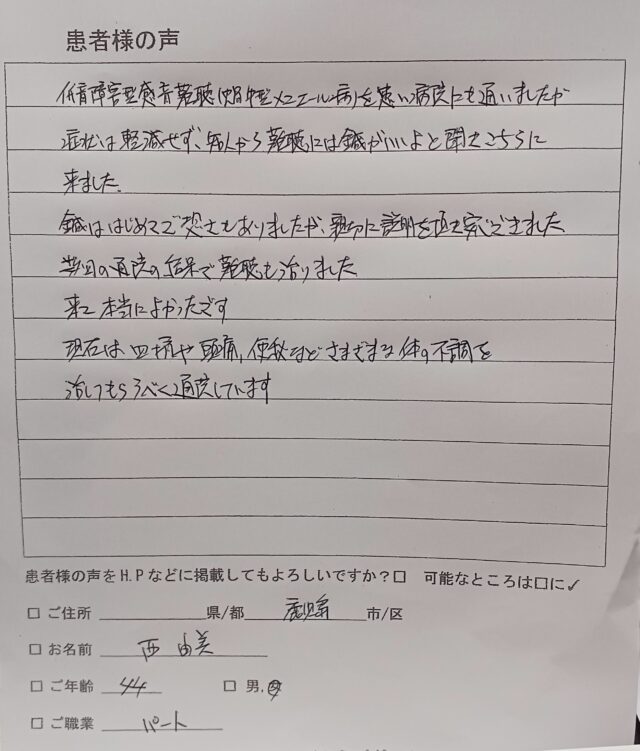 患者様の声
低音障害型感音難聴(蝸牛型メニエール病)を患い病院にも通いましたが
症状は軽減せず、知人から難聴には鍼がいいよと聞きこちらに
来ました。
鍼ははじめてで恐さもありましたが、親切に説明を頂き安心できました
数回の通院の結果で難聴も治りました
来て本当によかったです
現在は 頭痛, 便秘などさまざまな体の不調を
治してもらうべく通院しています
患者様の声をH.Pなどに掲載してもよろしいですか?□ 可能なところは□に✓
□ ご住所 県/都 市/区
□ お名前 西 由美
□ ご年齢 44 □ 男.女
□ ご職業 パート